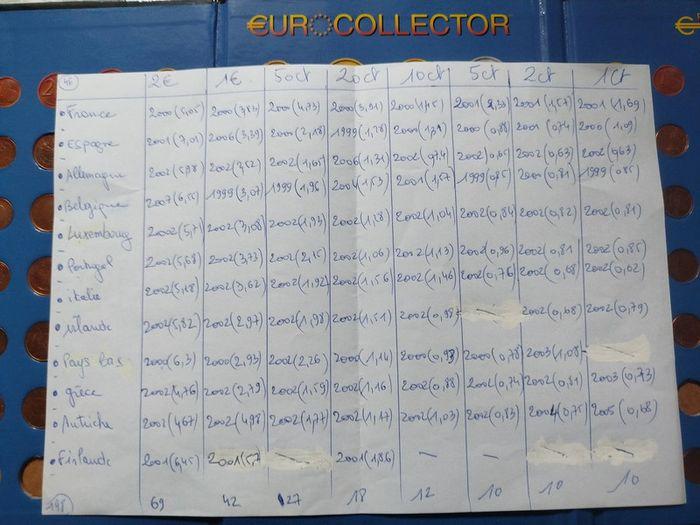 EUROCOLLECTOR
2€ 1€ 50ct 20ct 10ct 5ct 2ct 1ct
France 2000(5,05) 2000(3,83) 2000(4,73) 2000(3,31) 2000 2001 2001(1,57) 2001(1,69)
Espagne 2001(7,01) 2006(3,39) 2000(2,18) 1999(1,28) 2000 2000(0,88) 2001 0,74 2000(1,09)
Allemagne 2002 2002(3,52) 2002(1,05) 2006(1,31) 2002 2002(0,65) 2002(0,63) 2002(0,63)
Belgique 2007 1999(3,07) 1999(1,96) 2004(1,53) 2001(1,57) 1999(0,85) 2000(0,81) 1999(0,85)
Luxembourg 2002(5,71) 2002(3,08) 2002(1,93) 2002(1,58) 2002(1,04) 2002(0,84) 2002(0,82) 2002(0,81)
Portugal 2002(5,68) 2002(3,73) 2002(2,15) 2002(1,06) 2002(1,13) 2002(0,96) 2002(0,81) 2002(0,85)
italie 2002 2002(3,62) 2002(1,92) 2002(1,56) 2002(1,46) 2002(0,76) 2002(0,68) 2002(0,62)
irlande 2002(5,82) 2002(2,97) 2002(1,98) 2002(1,51) 2002 — 2002(0,68) 2002(0,79)
Pays bas 2000(6,3) 2000(2,93) 2002(2,26) 2000(1,14) 2000(0,93) 2000(0,78) 2003(1,08) —
grèce 2002(4,76) 2002(2,79) 2002(1,59) 2002(1,16) 2002(0,88) 2002(0,74) 2002(0,81) 2003(0,73)
Autriche 2002(4,67) 2002(4,98) 2002(1,77) 2002(1,17) 2002(1,03) 2002(0,83) 2004(0,75) 2005(0,68)
Finlande 2001(6,45) 2001(5,7 — 2001(1,86) — — — —
198 69 42 27 18 12 10 10 10